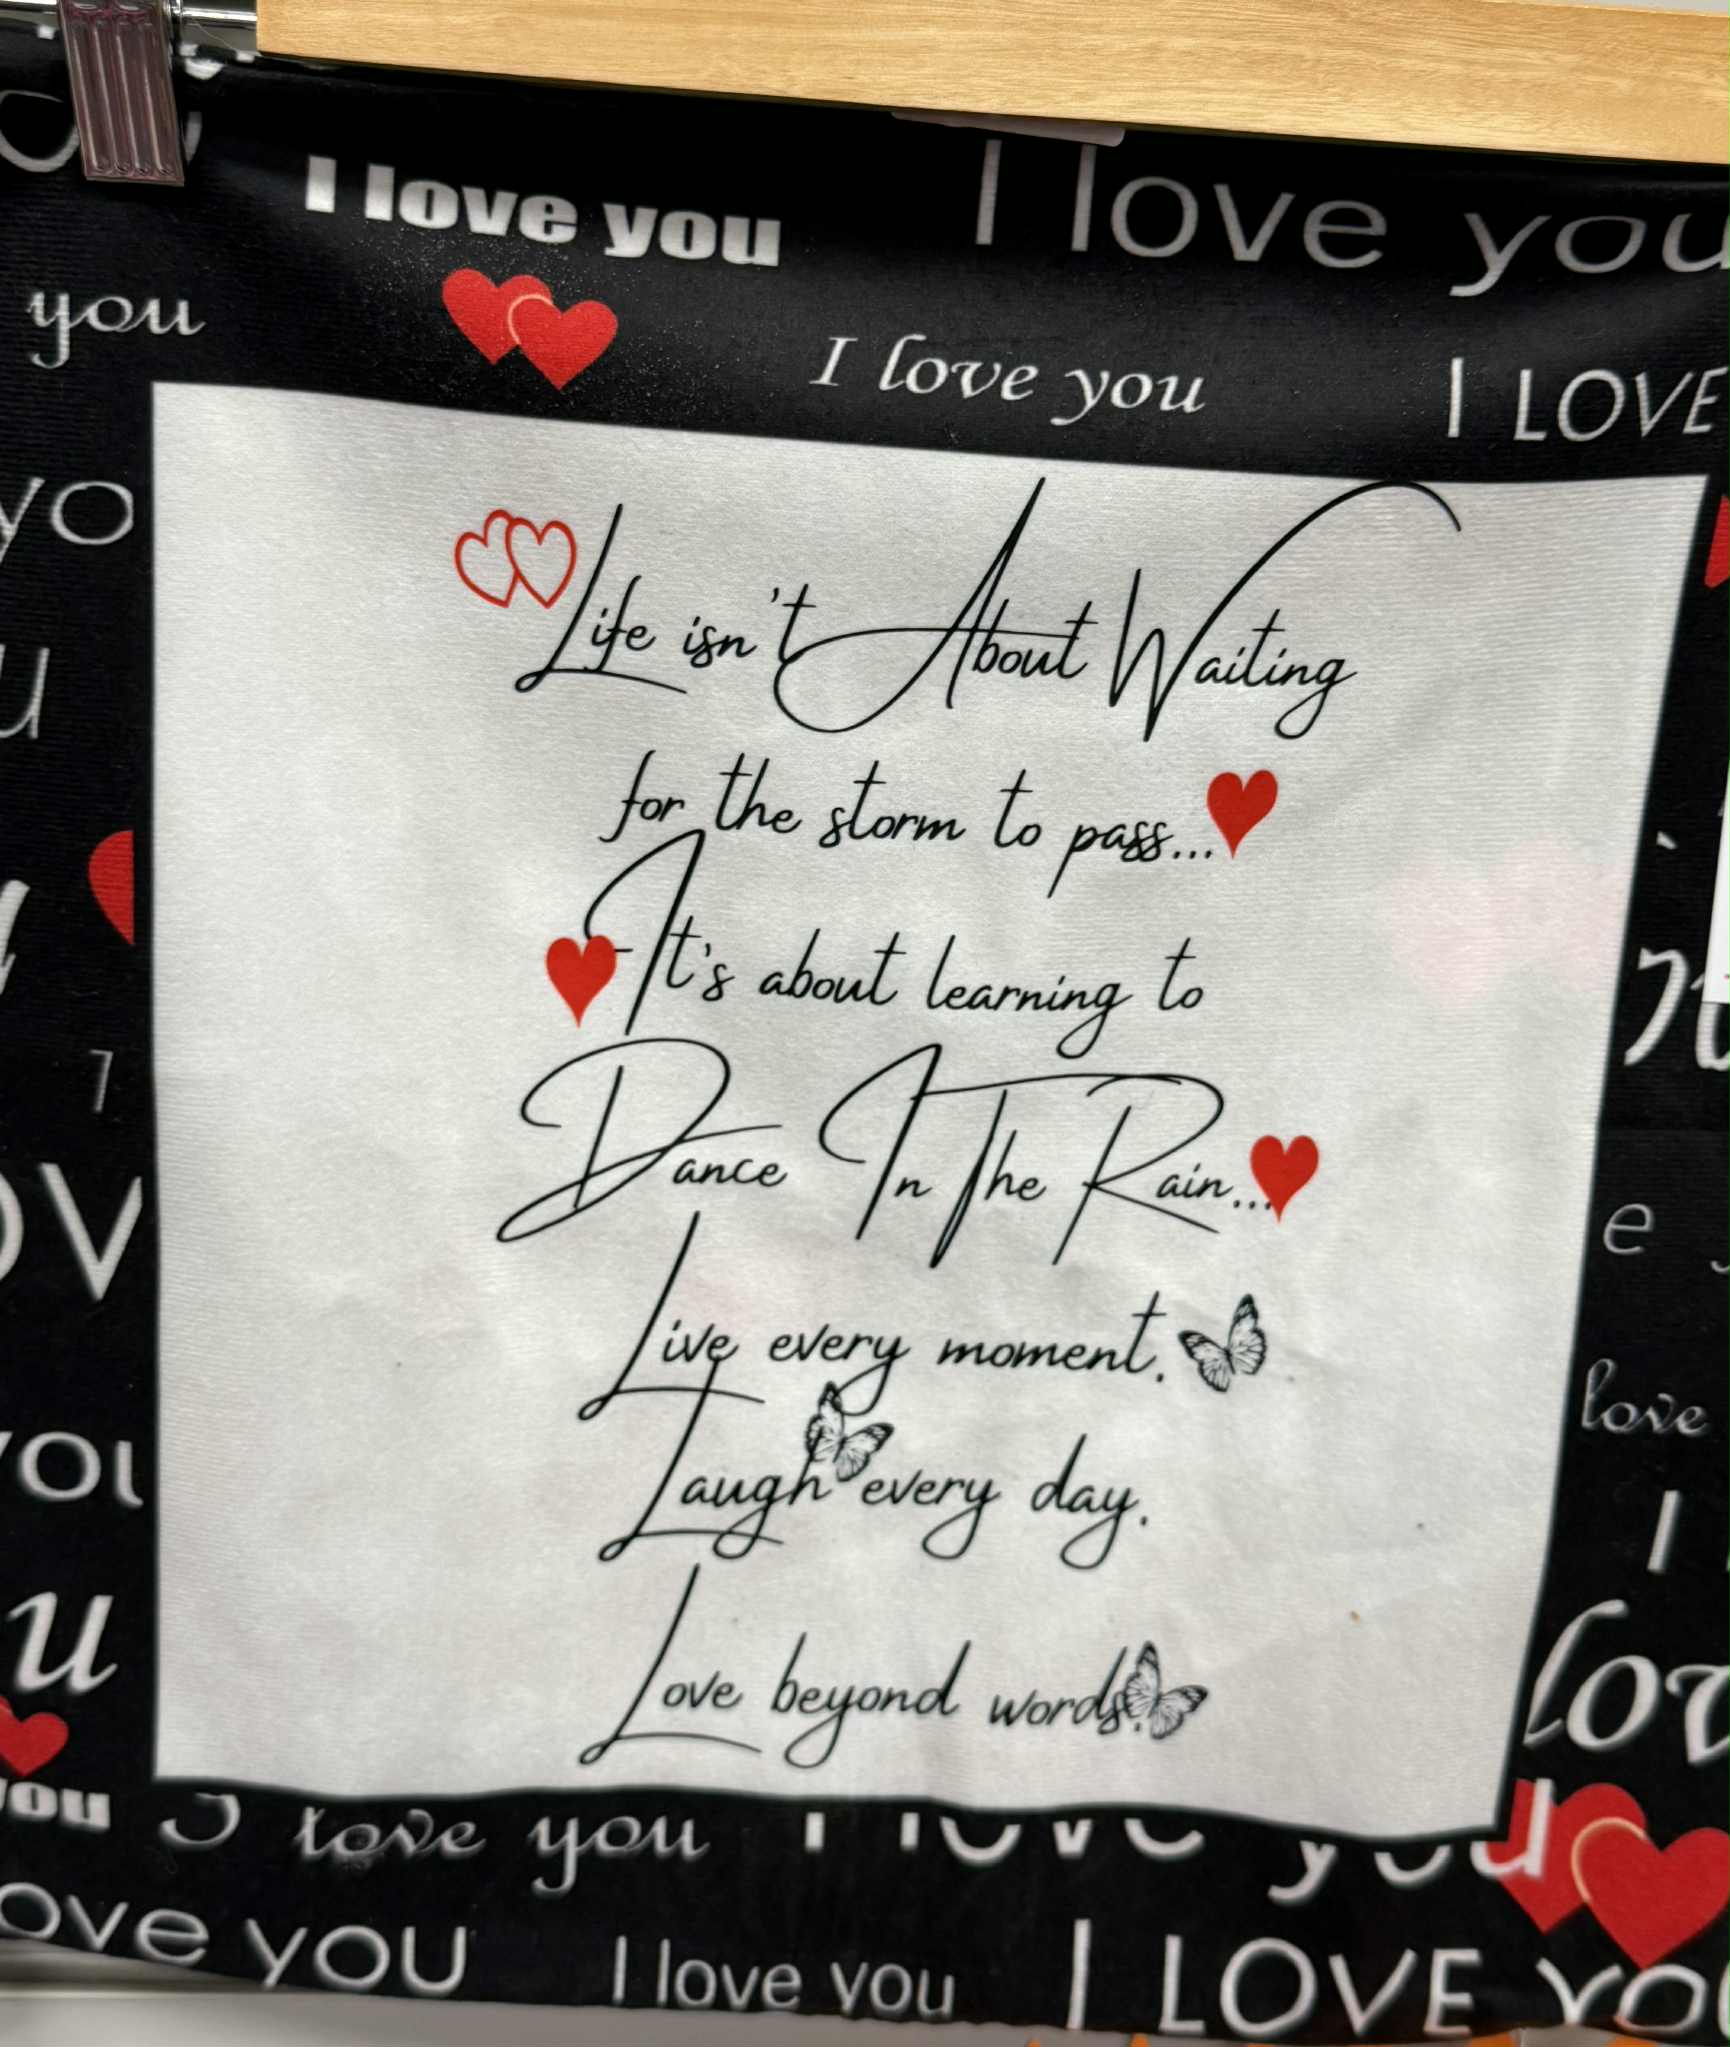 I love you
I love you
you
I love you
I LOVE
Life isn't About Waiting
for the storm to pass...
It's about learning to
Dance In The Rain...
Live every moment.
Laugh every day.
Love beyond words.
love
you
I love you
I love you
ove you
I love you
I LOVE YO